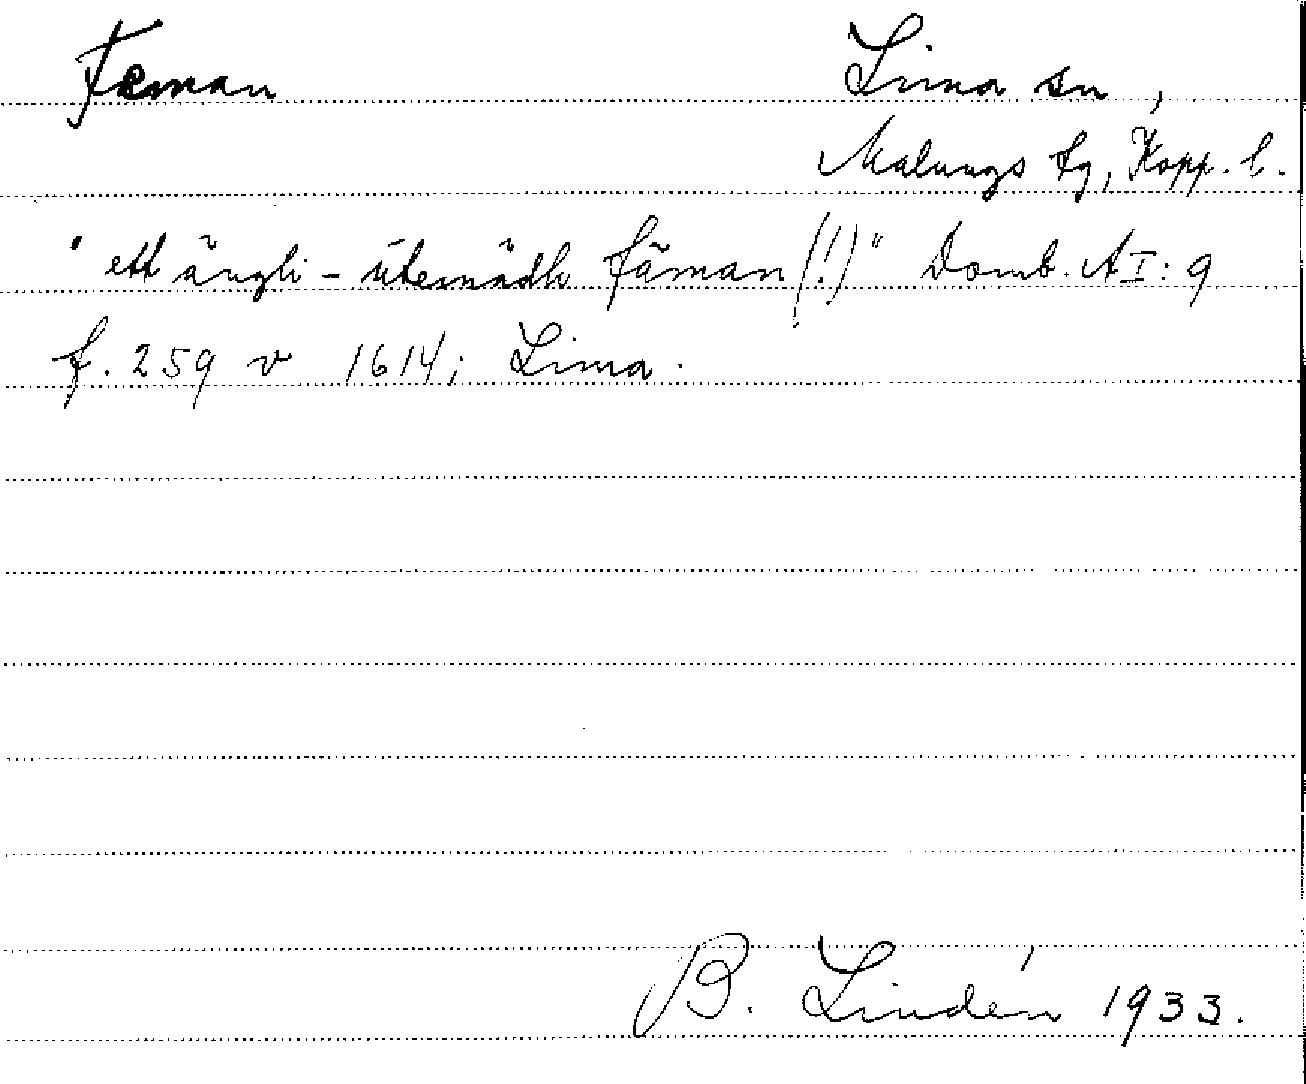 Feman Lima sn,
Malungs tg, Kopp. l.
"ett ängh - utemädh fäman (!)" Domb. A I: 9
f. 259 v 1614; Lima.
B. Lindén 1933.